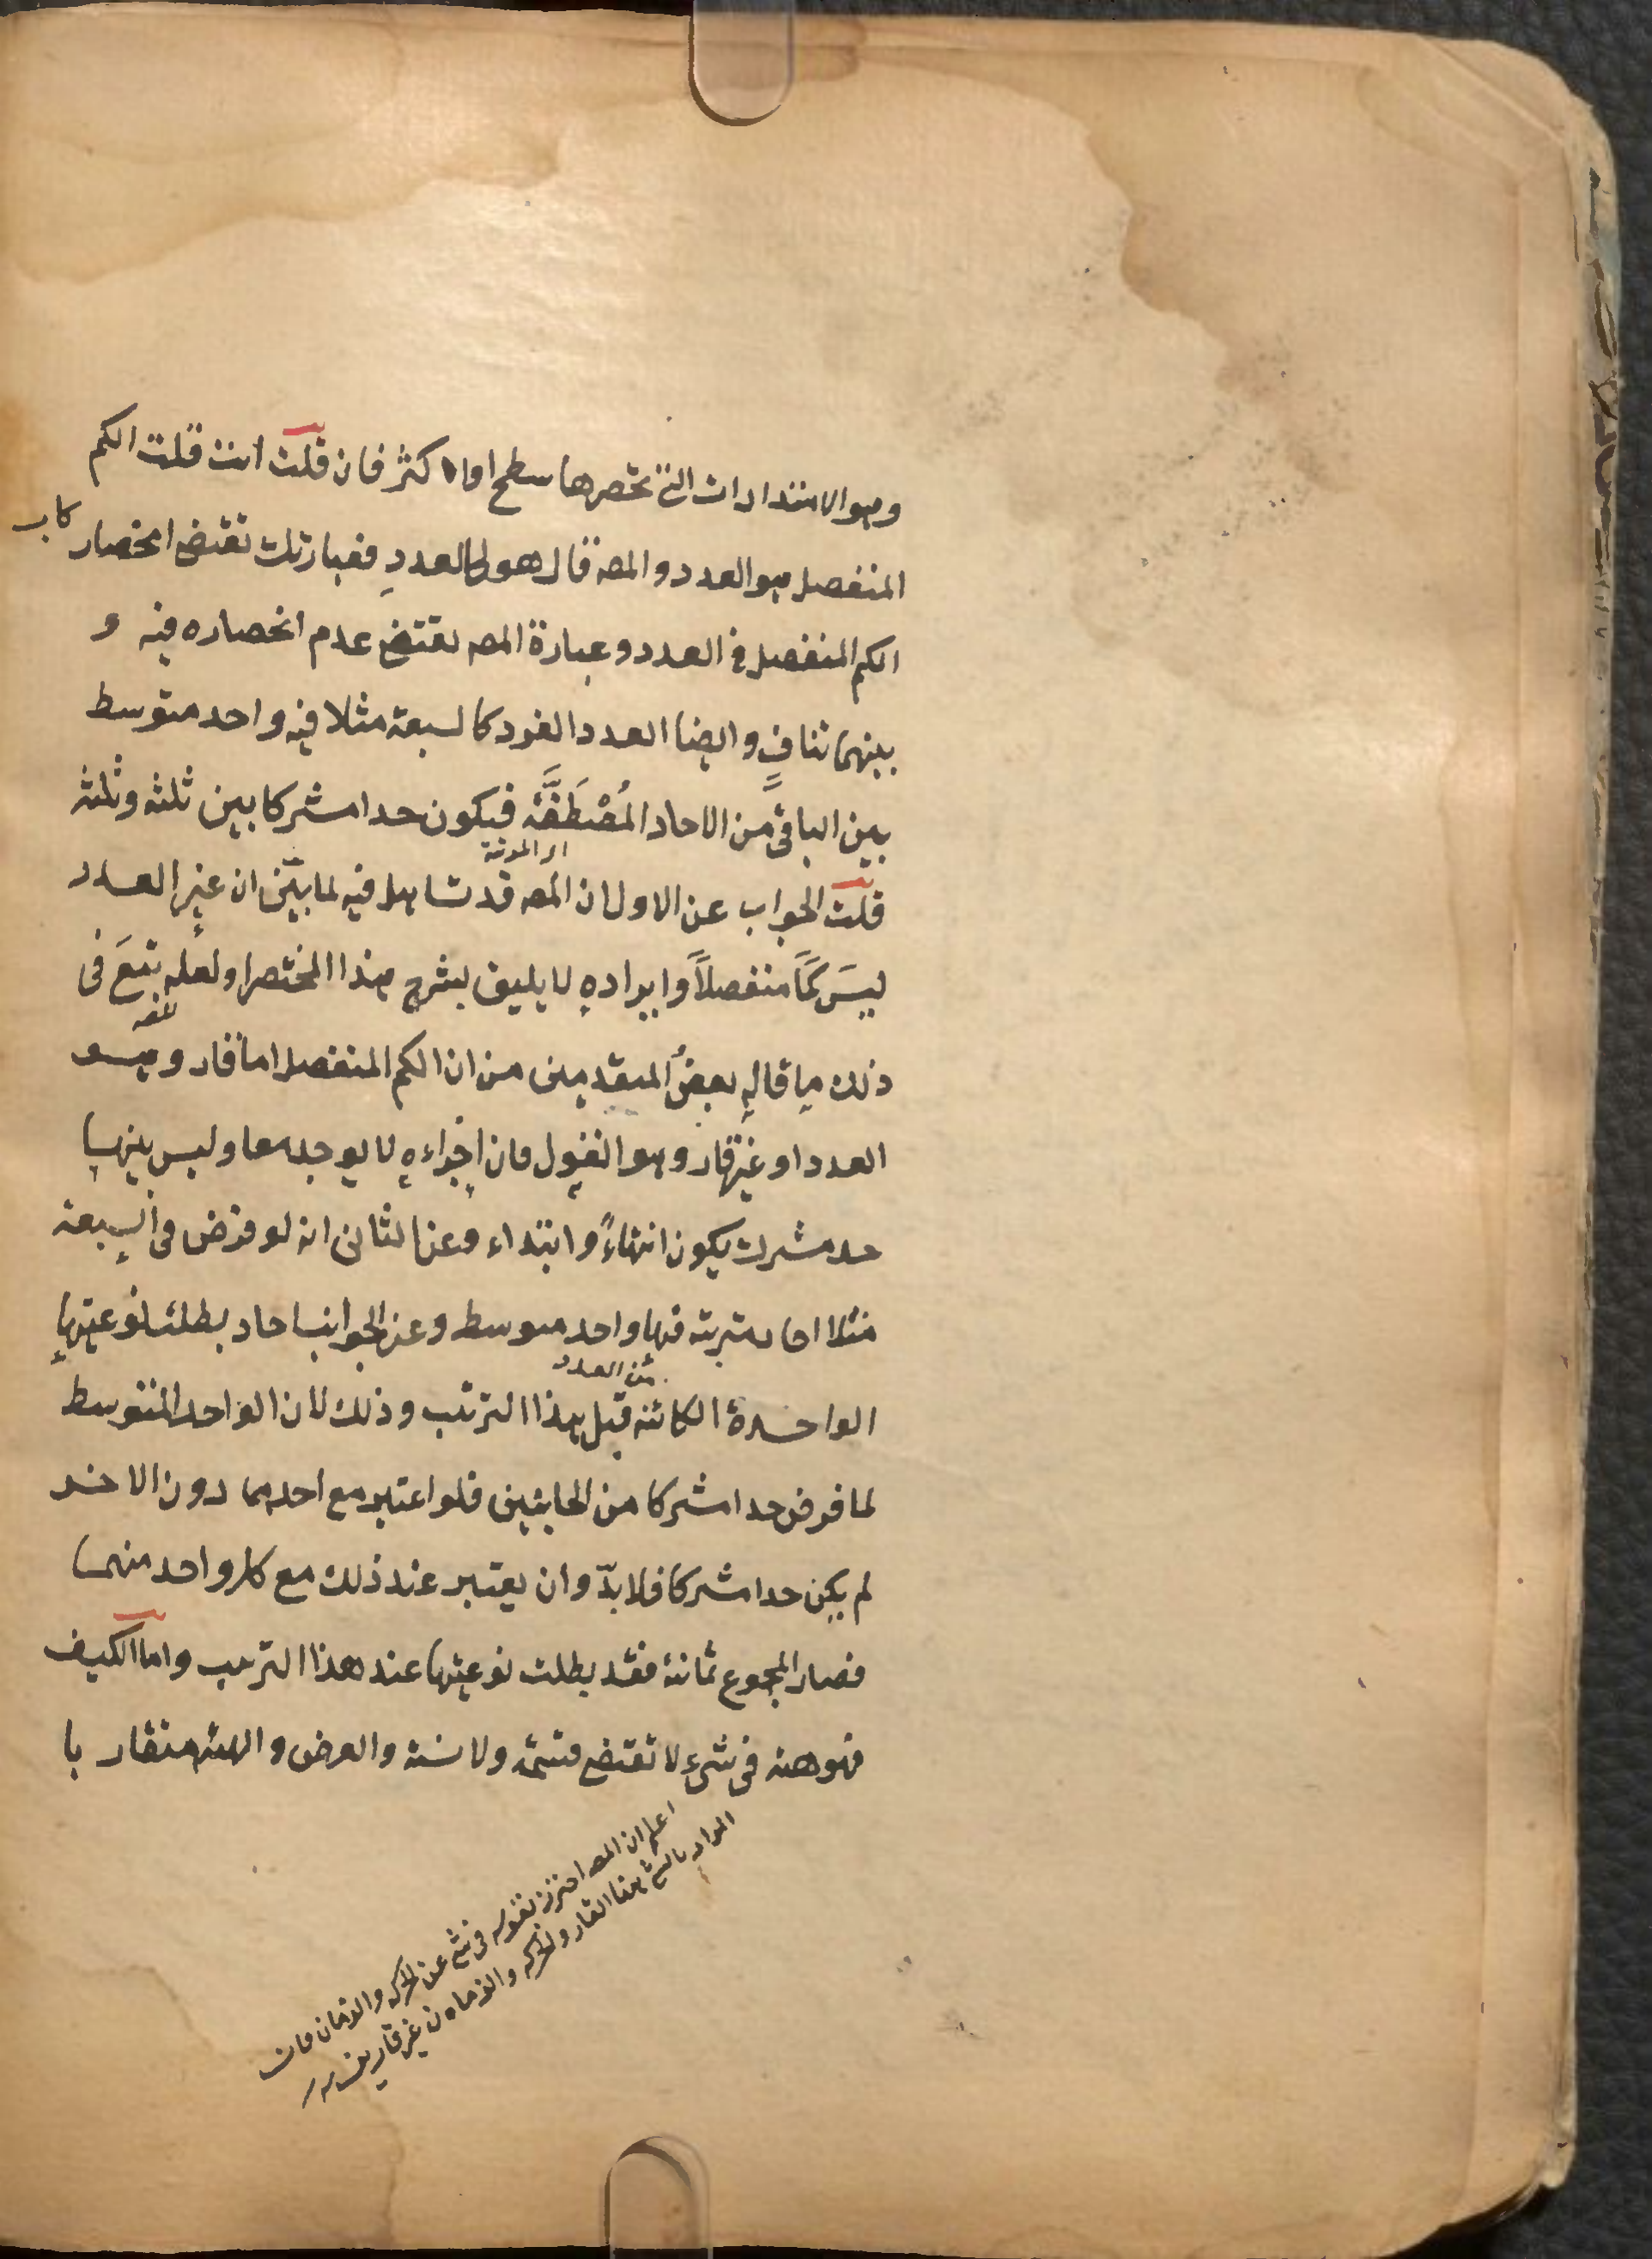 وهو الامتدادات التى تحصرها سطح او اكثر فان قلت انت قلت الكم
المنفصل هو العدد والمص قال هو كالعددِ فعبارتك تقتضى انحصار
الكم المنفصل فى العدد وعبارة المص تقتضى عدم انحصاره فيه و
بينهما تنافٍ وايضا العدد الفرد كالسبعة مثلا فيه واحد متوسط
بين الباقى من الاحاد المُصْطَفَّة فيكون حدا مشتركا بين ثلثه وثلثه
قلت الجواب عن الاول ان المص قد تساهل فيه لما بيّن ان غير العدد
ليسَ كمًّا منفصلاً وايراده لا يليق بشرح هذا المختصر او لعله تبعَ فى
ذلك ما قاله بعضُ المتقدمين من ان الكم المنفصل اما قار وهو
العدد او غير قار وهو القول فان اجزاءه لا يوجد معا وليس بينها
حد مشترك يكون انتهاءً وابتداء وعن الثانى انه لو فرض فى السبعة
مثلا احاد مترتبة فيها واحد متوسط وعن الجوانب احاد بطلت نوعيتها
الواحدة الكائنه قبل هذا الترتيب وذلك لان الواحد المتوسط
من العدد
لما فرض حدا مشتركا من الجانبين فلو اعتبر مع احدهما دون الاخر
لم يكن حدا مشتركا فلا بدّ وان يعتبر عند ذلك مع كل واحد منهما
فصار المجموع ثمانية فقد بطلت نوعيتها عند هذا الترتيب واما الكيف
فهو هيئة فى شىء لا تقتضى قسمة ولا نسبة والعرض والهيئة متقار با
اعلم ان المص احترز بقوله فى شئ عن الحركه والزمان فان
المراد بالشئ هنا القار والحركه والزمان غير قارين